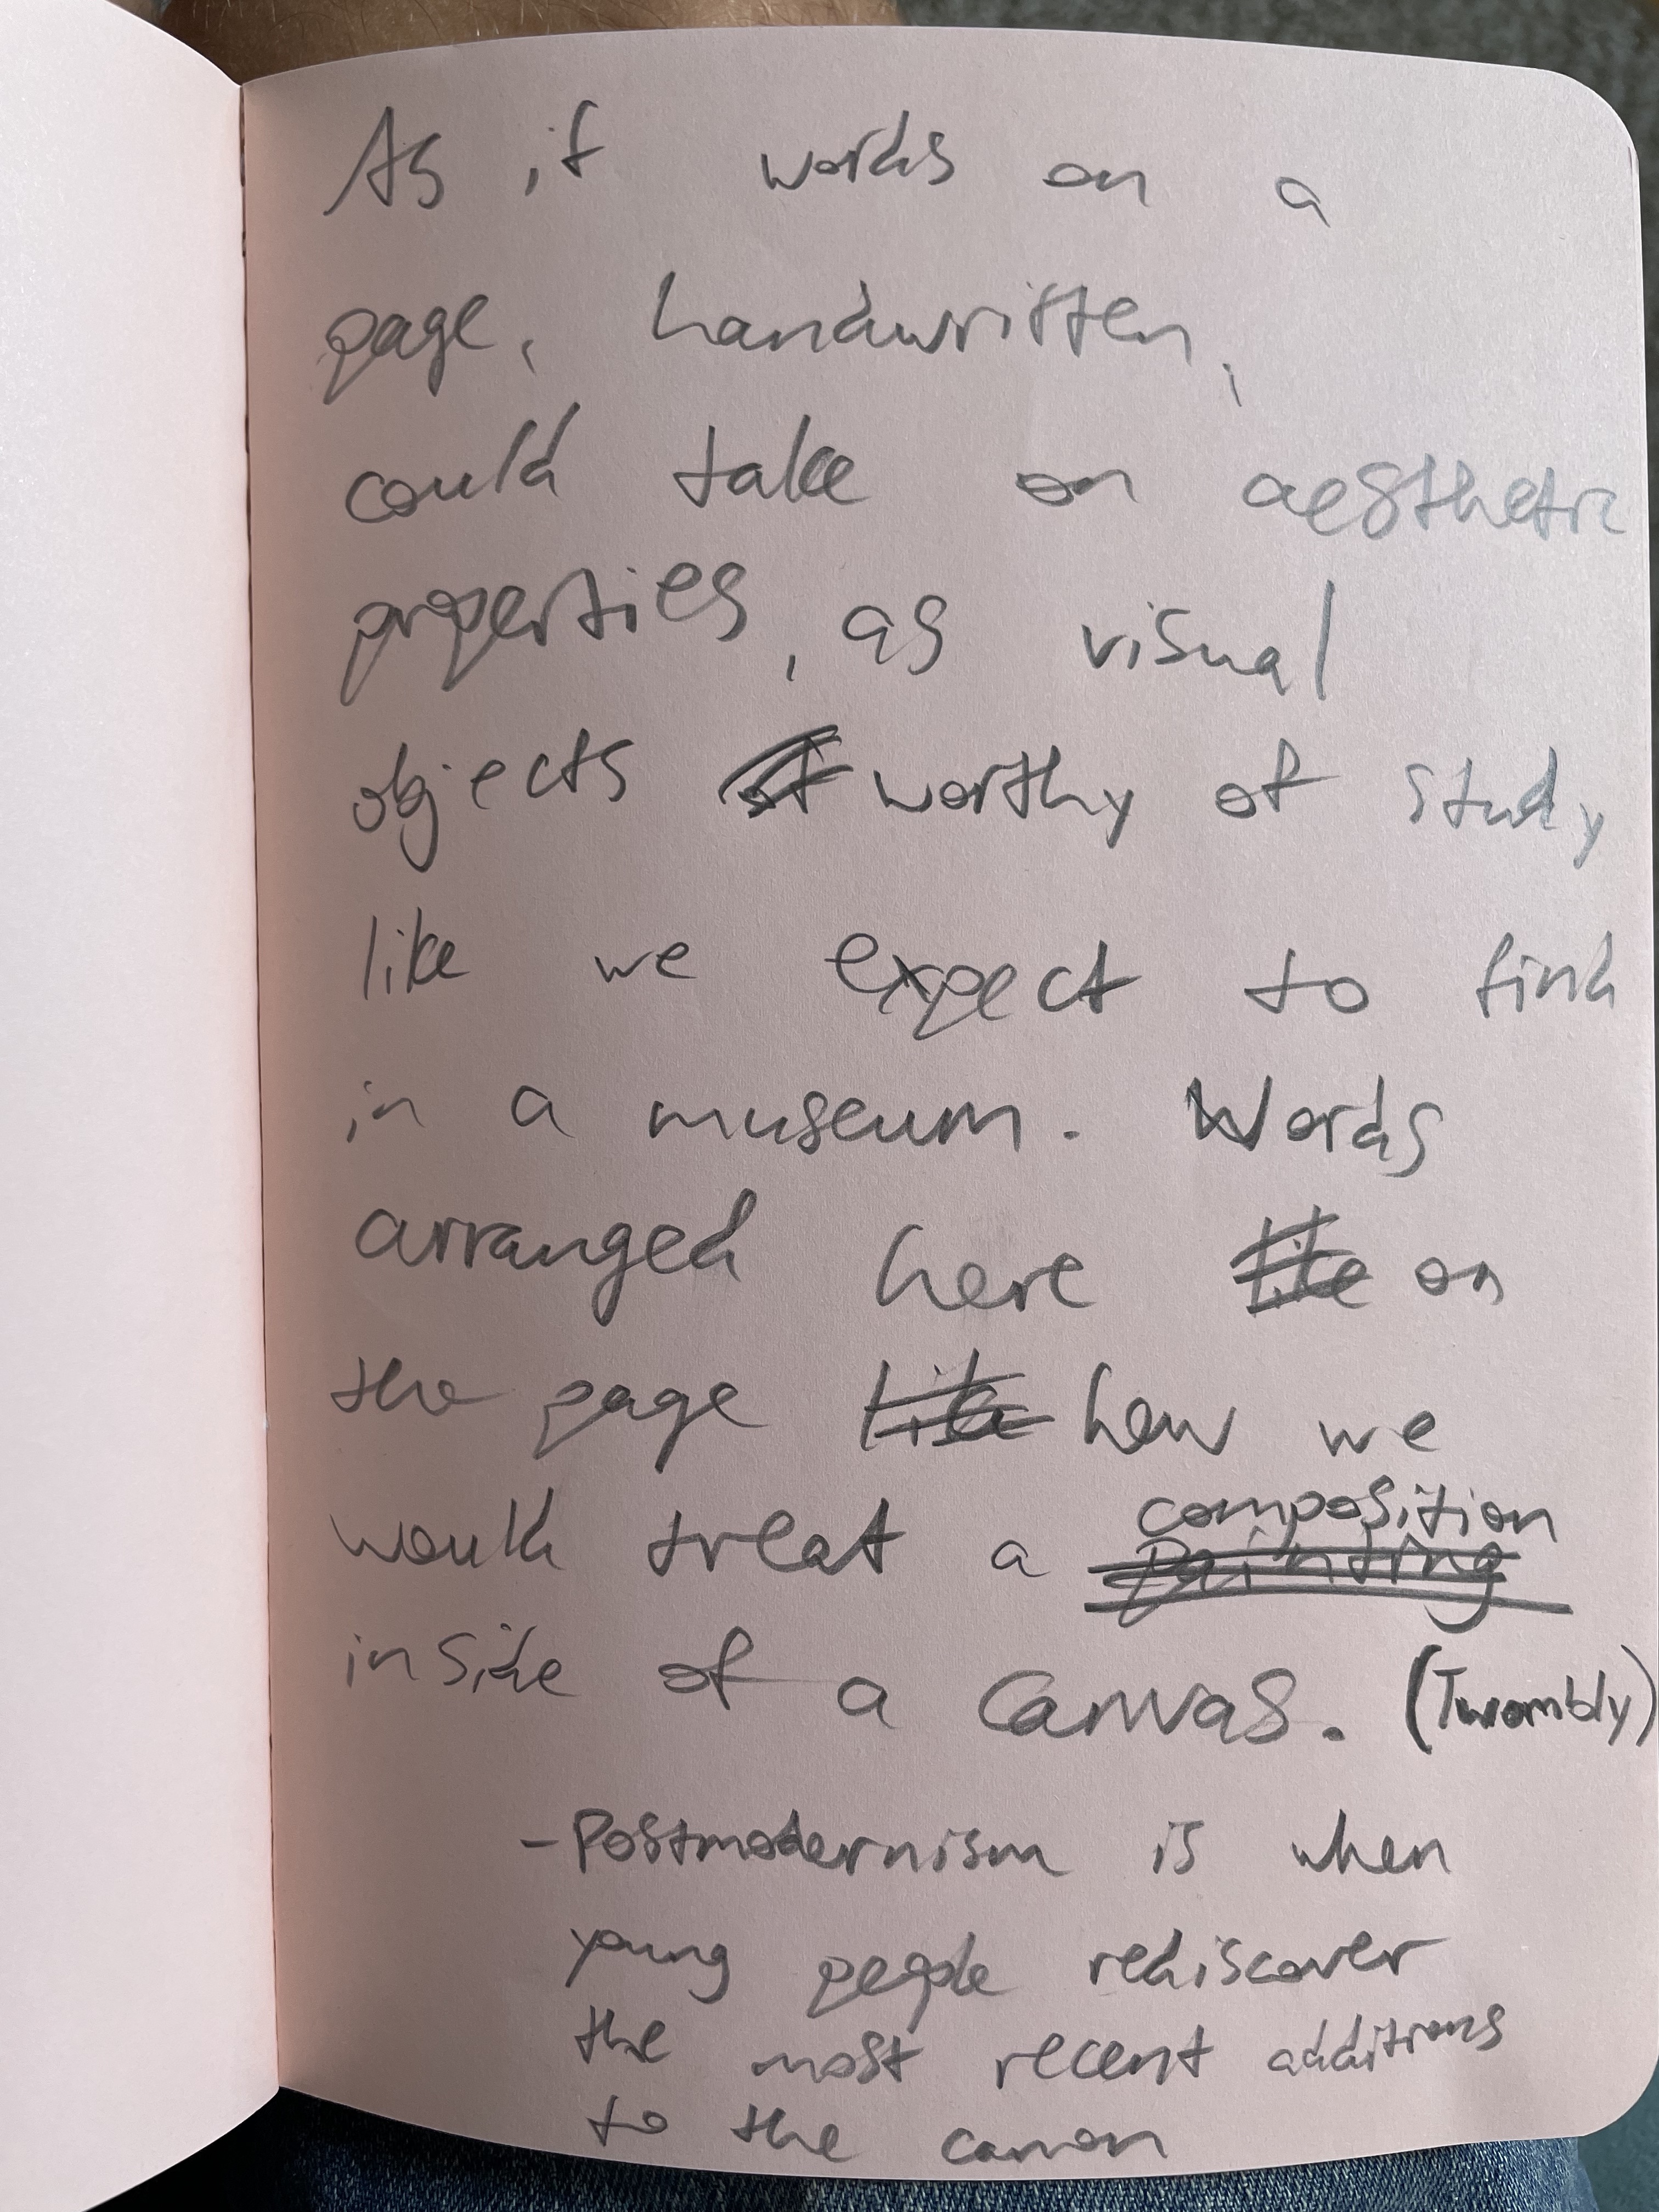 As if words on a
page, handwritten,
could take on aesthetic
properties, as visual
objects worthy of study
like we expect to find
in a museum. Words
arranged here like on
the page like how we
would treat a composition
painting
inside of a canvas. (Twombly)
- Postmodernism is when
young people rediscover
the most recent additions
to the canon